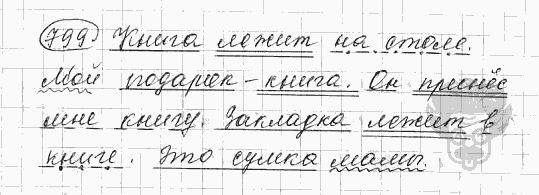 799) Книга лежит на столе.
Мой подарок - книга. Он принёс
мне книгу. Закладка лежит в
книге. Это сумка мамы.